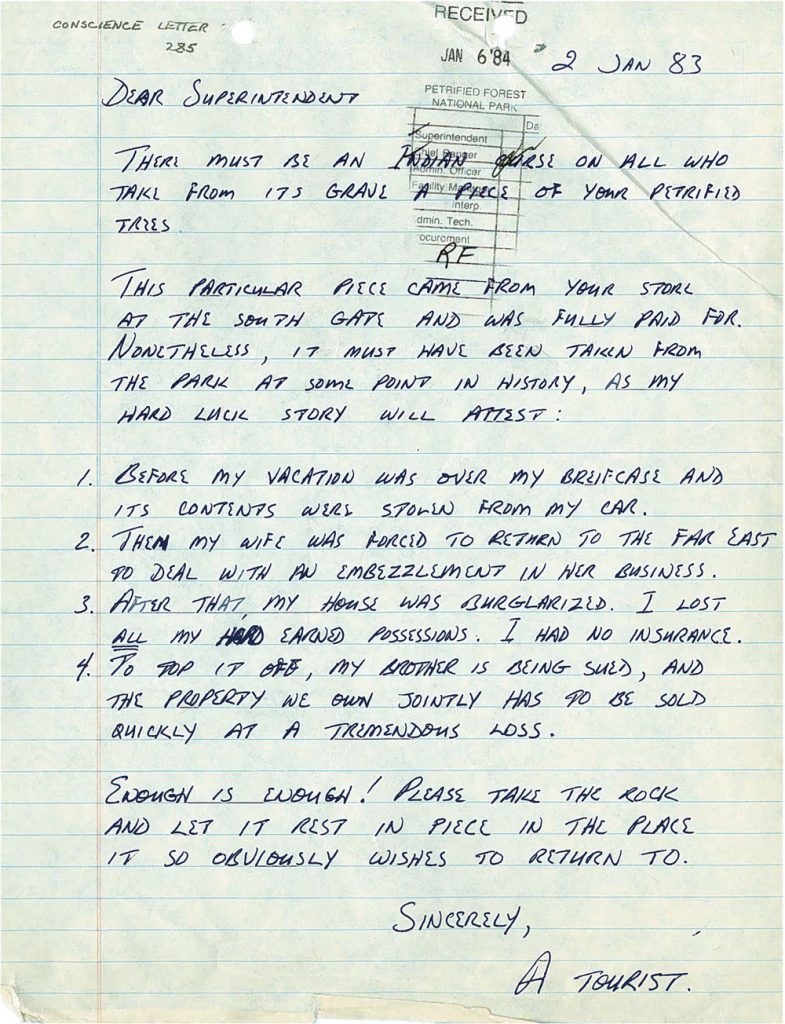 CONSCIENCE LETTER
285
RECEIVED
JAN 6 '84
PETRIFIED FOREST
NATIONAL PARK
Da
Superintendent
Chief Ranger
Admin. Officer
Facility
Interp.
dmin. Tech.
ocurement
RF
2 JAN 83
DEAR SUPERINTENDENT
THERE MUST BE AN INDIAN CURSE ON ALL WHO
TAKE FROM ITS GRAVE A PIECE OF YOUR PETRIFIED
TREES.
THIS PARTICULAR PIECE CAME FROM YOUR STORE
AT THE SOUTH GATE AND WAS FULLY PAID FOR.
NONETHELESS, IT MUST HAVE BEEN TAKEN FROM
THE PARK AT SOME POINT IN HISTORY, AS MY
HARD LUCK STORY WILL ATTEST:
1. BEFORE MY VACATION WAS OVER MY BREIFCASE AND
ITS CONTENTS WERE STOLEN FROM MY CAR.
2. THEN MY WIFE WAS FORCED TO RETURN TO THE FAR EAST
TO DEAL WITH AN EMBEZZLEMENT IN HER BUSINESS.
3. AFTER THAT, MY HOUSE WAS BURGLARIZED. I LOST
ALL MY HARD EARNED POSSESSIONS. I HAD NO INSURANCE.
4. TO TOP IT OFF, MY BROTHER IS BEING SUED, AND
THE PROPERTY WE OWN JOINTLY HAS TO BE SOLD
QUICKLY AT A TREMENDOUS LOSS.
ENOUGH IS ENOUGH! PLEASE TAKE THE ROCK
AND LET IT REST IN PIECE IN THE PLACE
IT SO OBVIOUSLY WISHES TO RETURN TO.
SINCERELY,
A TOURIST.